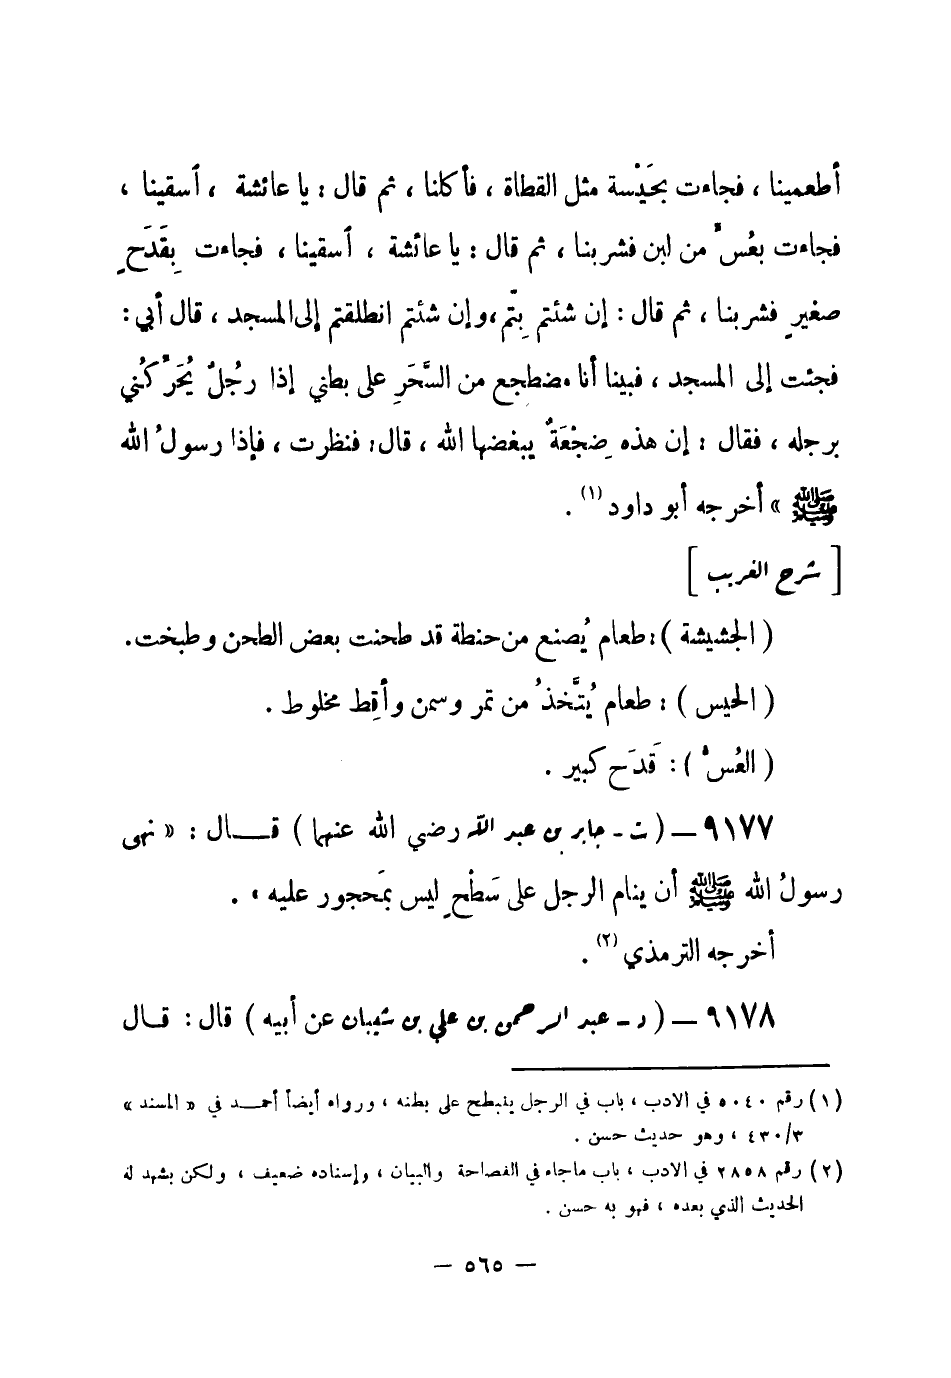 أطعمينا ، فجاءت بحَيْسة مثل القطاة ، فأكلنا ، ثم قال : يا عائشة ، أسقينا ،
فجاءت بعُسٍّ من لبن فشربنا ، ثم قال : يا عائشة ، أسقينا ، فجاءت بِقَدَحٍ
صغيرٍ فشربنا ، ثم قال : إن شئتم بِتّم ، وإن شئتم انطلقتم إلى المسجد ، قال أبي :
فجئت إلى المسجد ، فبينا أنا مضطجع من السَّحَرِ على بطني إذا رجُلٌ يُحَرِّكُني
برجله ، فقال : إن هذه ضِجْعَةٌ يبغضها الله ، قال : فنظرت ، فإذا رسولُ الله
ﷺ » أخرجه أبو داود (١) .
[ شرح الغريب ]
( الجشيشة ) : طعام يُصنع من حنطة قد طحنت بعض الطحن وطبخت .
( الحيس ) : طعام يُتَّخذُ من تمر وسمن وأقِط مخلوط .
( العُسُّ ) : قَدَح كبير .
٩١٧٧ — ( ت - جابر بن عبد الله رضي الله عنهما ) قـــال : « نهى
رسولُ الله ﷺ أن ينام الرجل على سَطْحٍ ليس بمَحجور عليه » .
أخرجه الترمذي (٢) .
٩١٧٨ — ( د - عبد الرحمن بن علي بن شيبان عن أبيه ) قال : قــال
(١) رقم ٥٠٤٠ في الادب ، باب في الرجل ينبطح على بطنه ، ورواه أيضاً أحمـــد في « المسند »
٤٣٠/٣ ، وهو حديث حسن .
(٢) رقم ٢٨٥٨ في الادب ، باب ماجاء في الفصاحة والبيان ، وإسناده ضعيف ، ولكن يشهد له
الحديث الذي بعده ، فهو به حسن .
— ٥٦٥ —